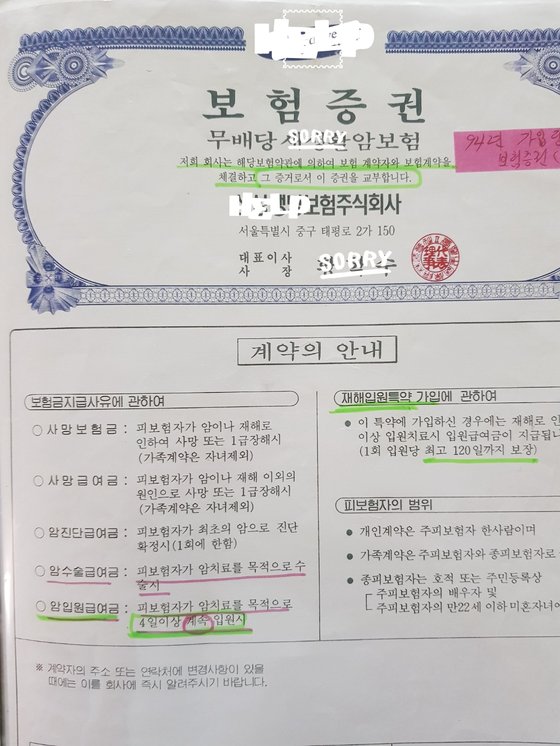 보험증권
무배당 암보험
SORRY
94년
보험증권
저희 회사는 해당보험약관에 의하여 보험 계약자와 보험계약을
체결하고 그 증거로서 이 증권을 교부합니다.
보험주식회사
서울특별시 중구 태평로 2가 150
대표이사
사 장
SORRY 수
계약의 안내
보험금지급사유에 관하여
○ 사망보험금 : 피보험자가 암이나 재해로
인하여 사망 또는 1급장해시
(가족계약은 자녀제외)
○ 사망급여금 : 피보험자가 암이나 재해 이외의
원인으로 사망 또는 1급장해시
(가족계약은 자녀제외)
○ 암진단급여금 : 피보험자가 최초의 암으로 진단
확정시(1회에 한함)
○ 암수술급여금 : 피보험자가 암치료를 목적으로 수
술시
○ 암입원급여금 : 피보험자가 암치료를 목적으로
4일이상 계속 입원시
※ 계약자의 주소 또는 연락처에 변경사항이 있을
때에는 이를 회사에 즉시 알려주시기 바랍니다.
재해입원특약 가입에 관하여
● 이 특약에 가입하신 경우에는 재해로 인
이상 입원치료시 입원급여금이 지급됩니
(1회 입원당 최고 120일까지 보장)
피보험자의 범위
● 개인계약은 주피보험자 한사람이며
● 가족계약은 주피보험자와 종피보험자로
● 종피보험자는 호적 또는 주민등록상
주피보험자의 배우자 및
주피보험자의 만22세 이하 미혼자녀